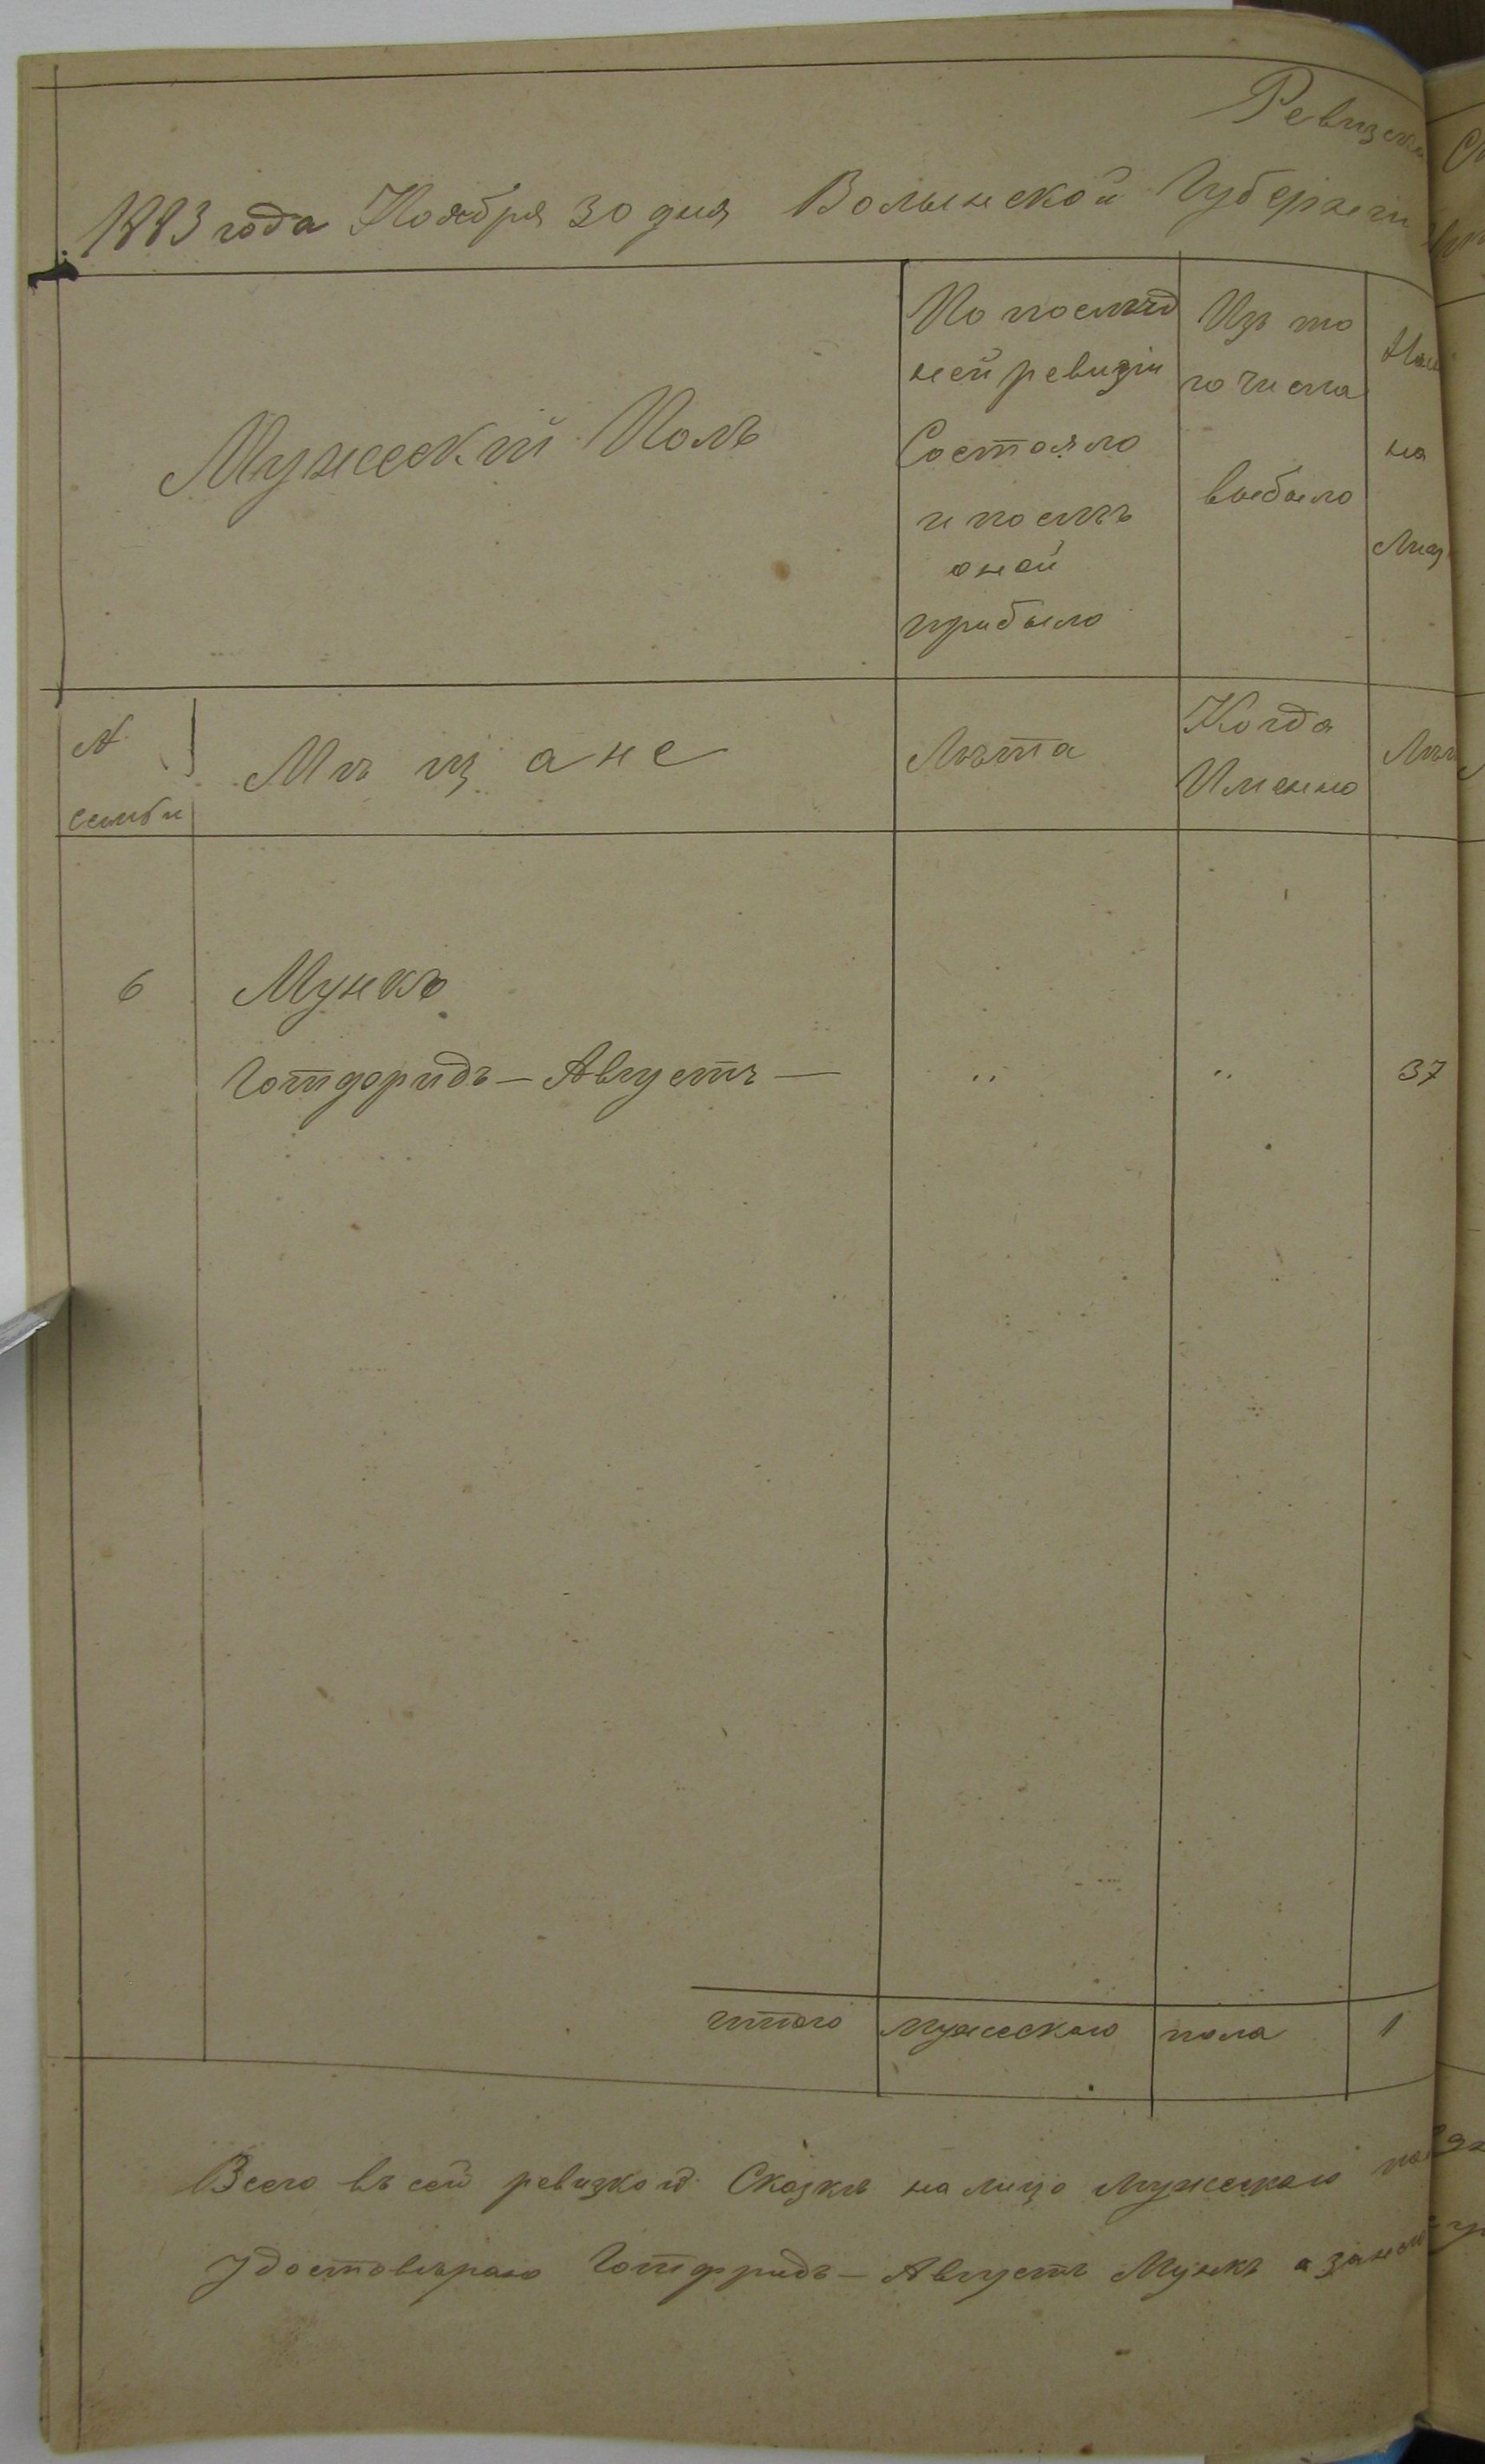 Ревизска
1883 года Ноября 30 дня Волынской Губернии
Мужеский Полъ
По послѣд
ней ревизіи
Состояло
и послѣ
оной
прибыло
Изъ то
го числа
выбыло
на
Лиц
№
семьи
Мѣщане
Лѣта
Когда
Именно
Лѣт
6
Мункъ
Готфридъ — Августъ —
"
"
37
итого мужескаго пола 1
Всего въ сей ревизкой Сказкѣ на лицо Мужескаго
Удостовѣраю Готфридъ — Августъ Мункъ а за